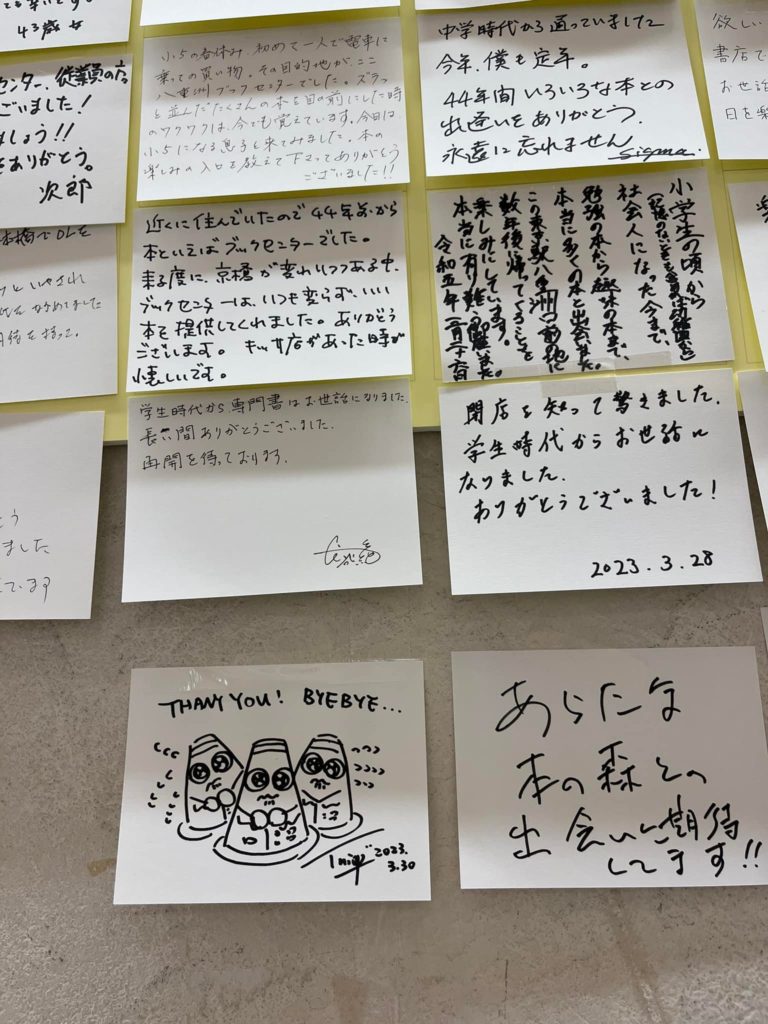 43歳 女
センター、従業員の
ございました!
ましょう!!
をありがとう。
次郎
小5の春休み、初めて一人で電車に
乗っての買い物。その目的地が、ここ
八重洲ブックセンターでした。ズラッ
と並んだたくさんの本を目の前にした時
のワクワクは、今でも覚えています。今日は
小5になる息子と来てみました。本の
楽しみの入口を教えて下さってありがとう
ございました!!
中学時代から通っていました
今年、僕も定年。
44年間いろいろな本との
出逢いをありがとう。
永遠に忘れません
Sigma.
欲しい
書店で
お世話
日を楽
近くに住んでいたので44年前から
本といえばブックセンターでした。
来る度に、京橋が変わりつつある中、
ブックセンターは、いつも変らず、いい
本を提供してくれました。ありがとう
ございます。キッサ店があった時が
懐しいです。
小学生の頃から
社会人になった今まで、
勉強の本から趣味の本まで、
本当に多くの本と出会えました。
この東京駅八重洲口前の地に
数年後帰ってくることを
楽しみにしています。
本当に有り難う御座いました。
令和五年
学生時代から専門書はお世話になりました。
長い間ありがとうございました。
再開を待っております。
閉店を知って驚きました。
学生時代からお世話に
なりました。
ありがとうございました!
2023.3.28
ました
ています
THANK YOU! BYEBYE...
2023.
3.30
あらたな
本の森との
出会いに期待
してます!!